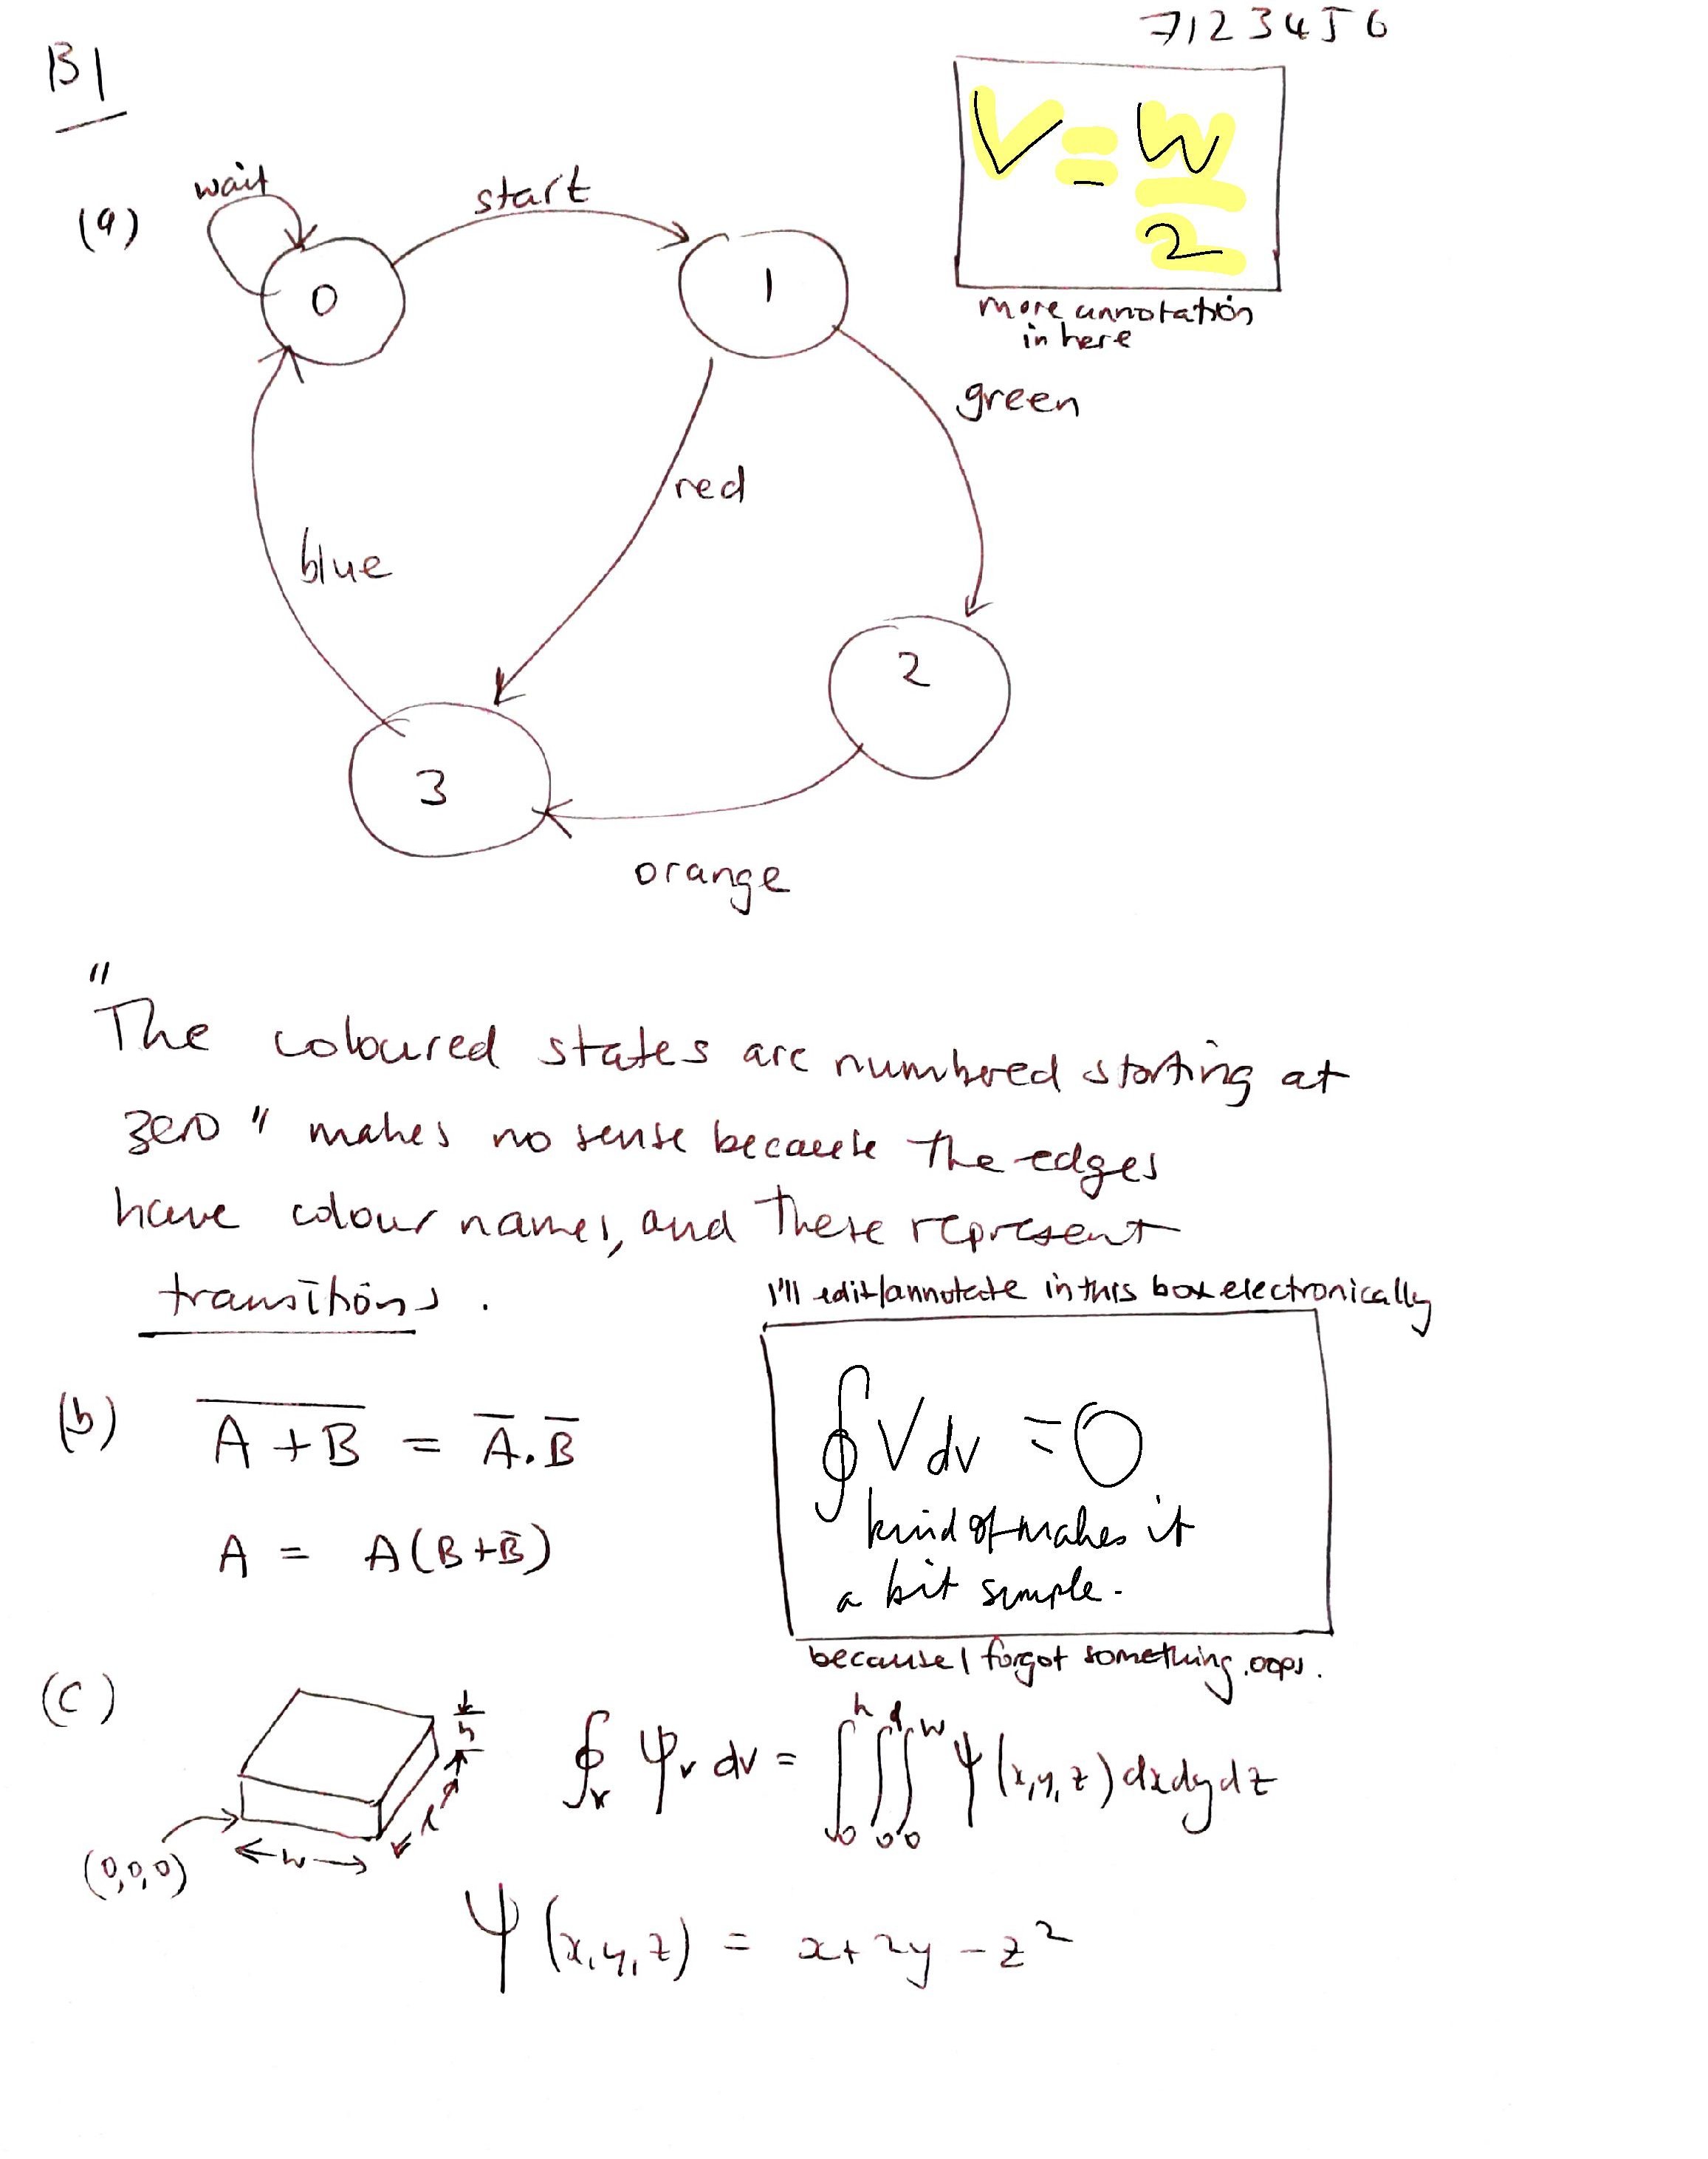 7123456
B1
V = W
2
more annotation
in here
(a)
wait
start
0
1
green
red
blue
2
3
orange
"
The coloured states are numbered starting at
zero" makes no sense because the edges
have colour names, and these represent
transitions.
I'll edit/annotate in this box electronically
(b) \overline{A + B} = \overline{A}.\overline{B}
A = A(B+\overline{B})
∮ V dv = 0
kind of makes it
a bit simple.
because I forgot something, oops.
(c)
h
l
w
(0,0,0)
∮_v ψ_v dv = ∫_0^h ∫_0^d ∫_0^w ψ(x,y,z) dx dy dz
ψ(x,y,z) = x + 2y - z²